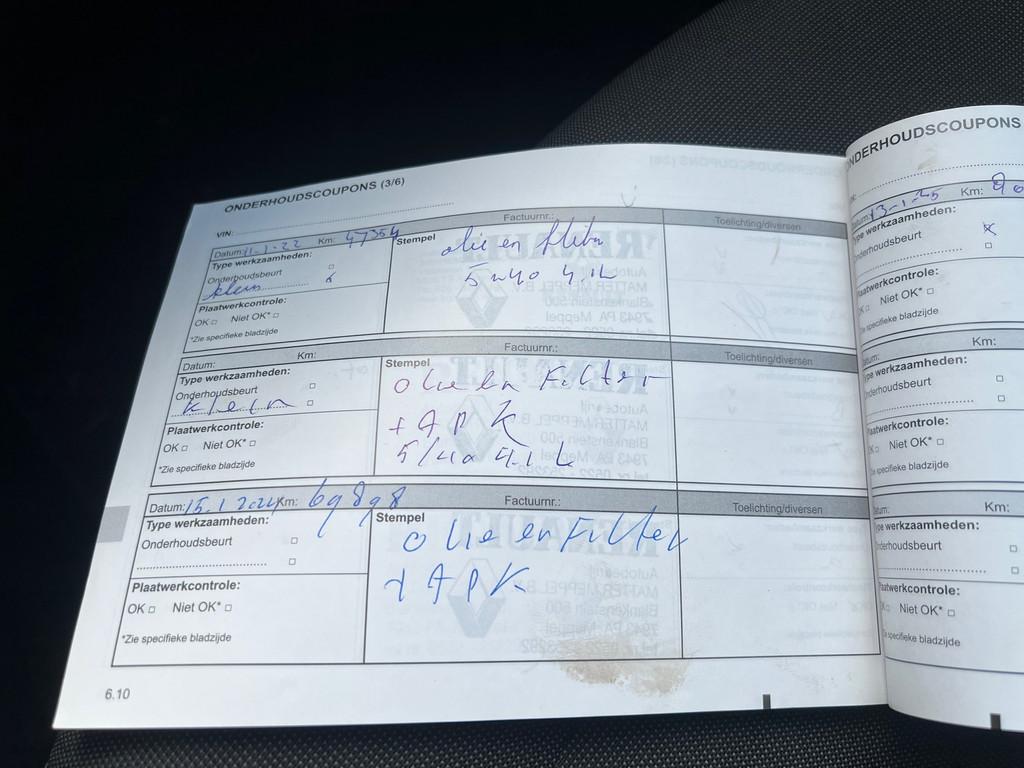 ONDERHOUDSCOUPONS (3/6)
VIN:
Datum: 11-1-22 Km: 47354 Factuurnr.: Toelichting/diversen
Type werkzaamheden: Stempel olie en filter
Onderhoudsbeurt 5w40 4,1L
klein
Plaatwerkcontrole:
OK Niet OK*
*Zie specifieke bladzijde
Datum: Km: Factuurnr.: Toelichting/diversen
Type werkzaamheden: Stempel olie en Filter
Onderhoudsbeurt + APK
klein 5/40 4.1 L
Plaatwerkcontrole:
OK Niet OK*
*Zie specifieke bladzijde
Datum: 15.1.2024 Km: 69898 Factuurnr.: Toelichting/diversen
Type werkzaamheden: Stempel olie en Filter
Onderhoudsbeurt + APK
Plaatwerkcontrole:
OK Niet OK*
*Zie specifieke bladzijde
6.10
ONDERHOUDSCOUPONS
Datum: 13-1-25 Km:
Type werkzaamheden:
Onderhoudsbeurt x
Plaatwerkcontrole:
OK Niet OK*
*Zie specifieke bladzijde
Datum: Km:
Type werkzaamheden:
Onderhoudsbeurt
Plaatwerkcontrole:
OK Niet OK*
*Zie specifieke bladzijde
Datum: Km:
Type werkzaamheden:
Onderhoudsbeurt
Plaatwerkcontrole:
OK Niet OK*
*Zie specifieke bladzijde